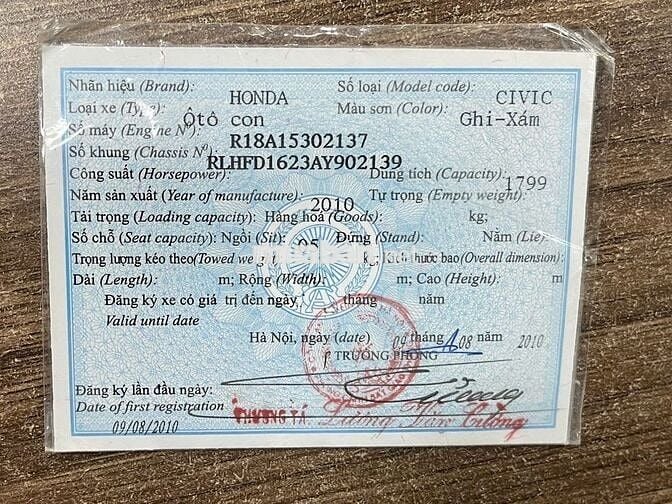 Nhãn hiệu (Brand): HONDA Số loại (Model code): CIVIC
Loại xe (Type): Ôtô con Màu sơn (Color): Ghi-Xám
Số máy (Engine Nº): R18A15302137
Số khung (Chassis Nº): RLHFD1623AY902139
Công suất (Horsepower): Dung tích (Capacity): 1799
Năm sản xuất (Year of manufacture): 2010 Tự trọng (Empty weight):
Tải trọng (Loading capacity): Hàng hoá (Goods): kg;
Số chỗ (Seat capacity): Ngồi (Sit): 05 Đứng (Stand): Năm (Lie):
Trọng lượng kéo theo (Towed weight): kg; Kích thước bao (Overall dimension):
Dài (Length): m; Rộng (Width): m; Cao (Height): m
Đăng ký xe có giá trị đến ngày tháng năm
Valid until date
Hà Nội, ngày (date) 09 tháng 08 năm 2010
TRƯỞNG PHÒNG
Đăng ký lần đầu ngày:
Date of first registration
09/08/2010
THƯỢNG TÁ